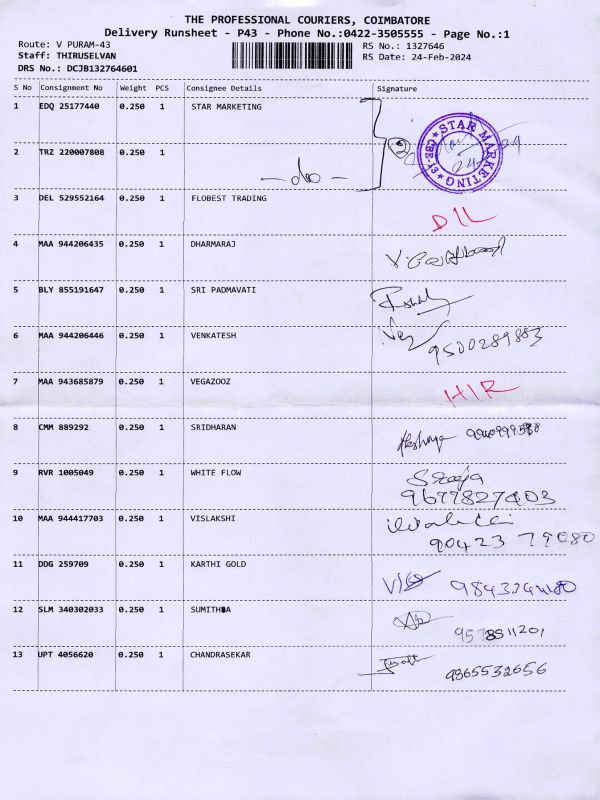 THE PROFESSIONAL COURIERS, COIMBATORE
Delivery Runsheet - P43 - Phone No.:0422-3505555 - Page No.:1
Route: V PURAM-43
RS No.: 1327646
Staff: THIRUSELVAN
RS Date: 24-Feb-2024
DRS No.: DCJB132764601
S No Consignment No Weight PCS Consignee Details Signature
1 EDQ 25177440 0.250 1 STAR MARKETING
STAR MARKETING
CBE-43
2 TRZ 220007808 0.250 1 -do- 2
3 DEL 529552164 0.250 1 FLOBEST TRADING
DIL
4 MAA 944206435 0.250 1 DHARMARAJ
5 BLY 855191647 0.250 1 SRI PADMAVATI
6 MAA 944206446 0.250 1 VENKATESH
9500289883
7 MAA 943685879 0.250 1 VEGAZOOZ
HIR
8 CMM 889292 0.250 1 SRIDHARAN
9 RVR 1005049 0.250 1 WHITE FLOW
9677827403
10 MAA 944417703 0.250 1 VISLAKSHI
90423 79080
11 DDG 259709 0.250 1 KARTHI GOLD
12 SLM 340302033 0.250 1 SUMITHRA
9578511201
13 UPT 4056620 0.250 1 CHANDRASEKAR
9865532656